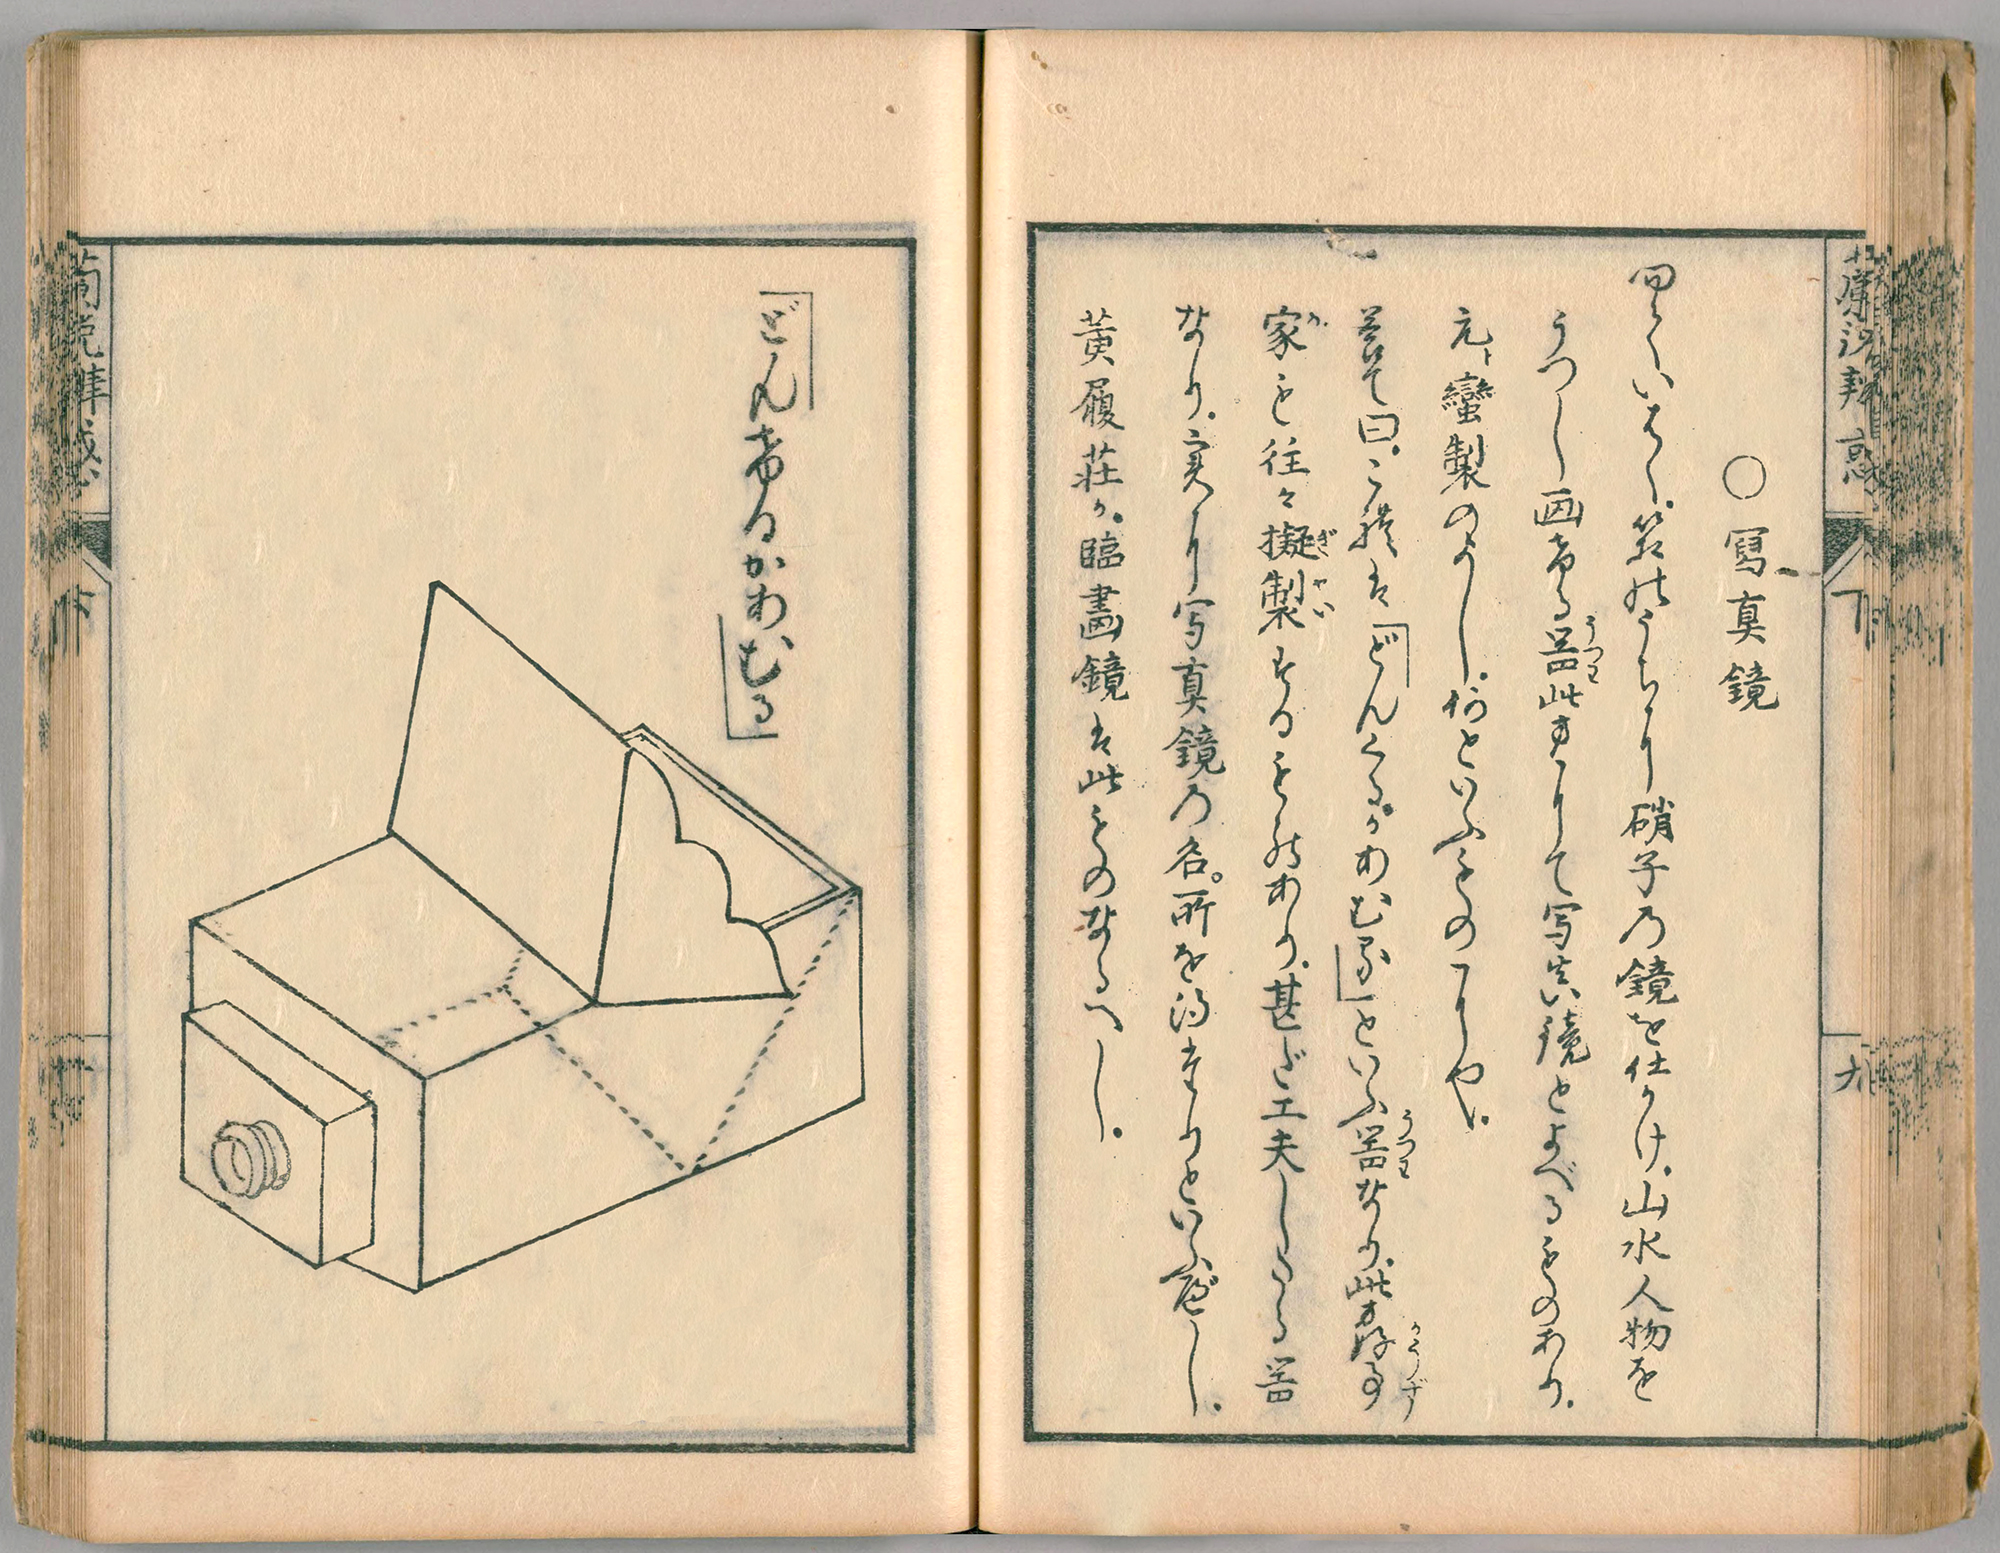 ○寫真鏡
問ていはく。箱のうちに硝子乃鏡を仕かけ。山水人物を
うつし画する器此方にて写真鏡とよべるものあり。
元ト蠻製のよし。何といふものにや。
答て曰。これは「どんくる。かあむる」といふ器なり。此方好事
家も往々擬製するものあり。甚だ工夫したる器
なり。実に写真鏡乃名。所を得たりといふべし。
黄履荘が。臨畫鏡は此ものなるべし。
蘭説弁惑
下
九
「どんけるかあむる」
蘭説弁惑